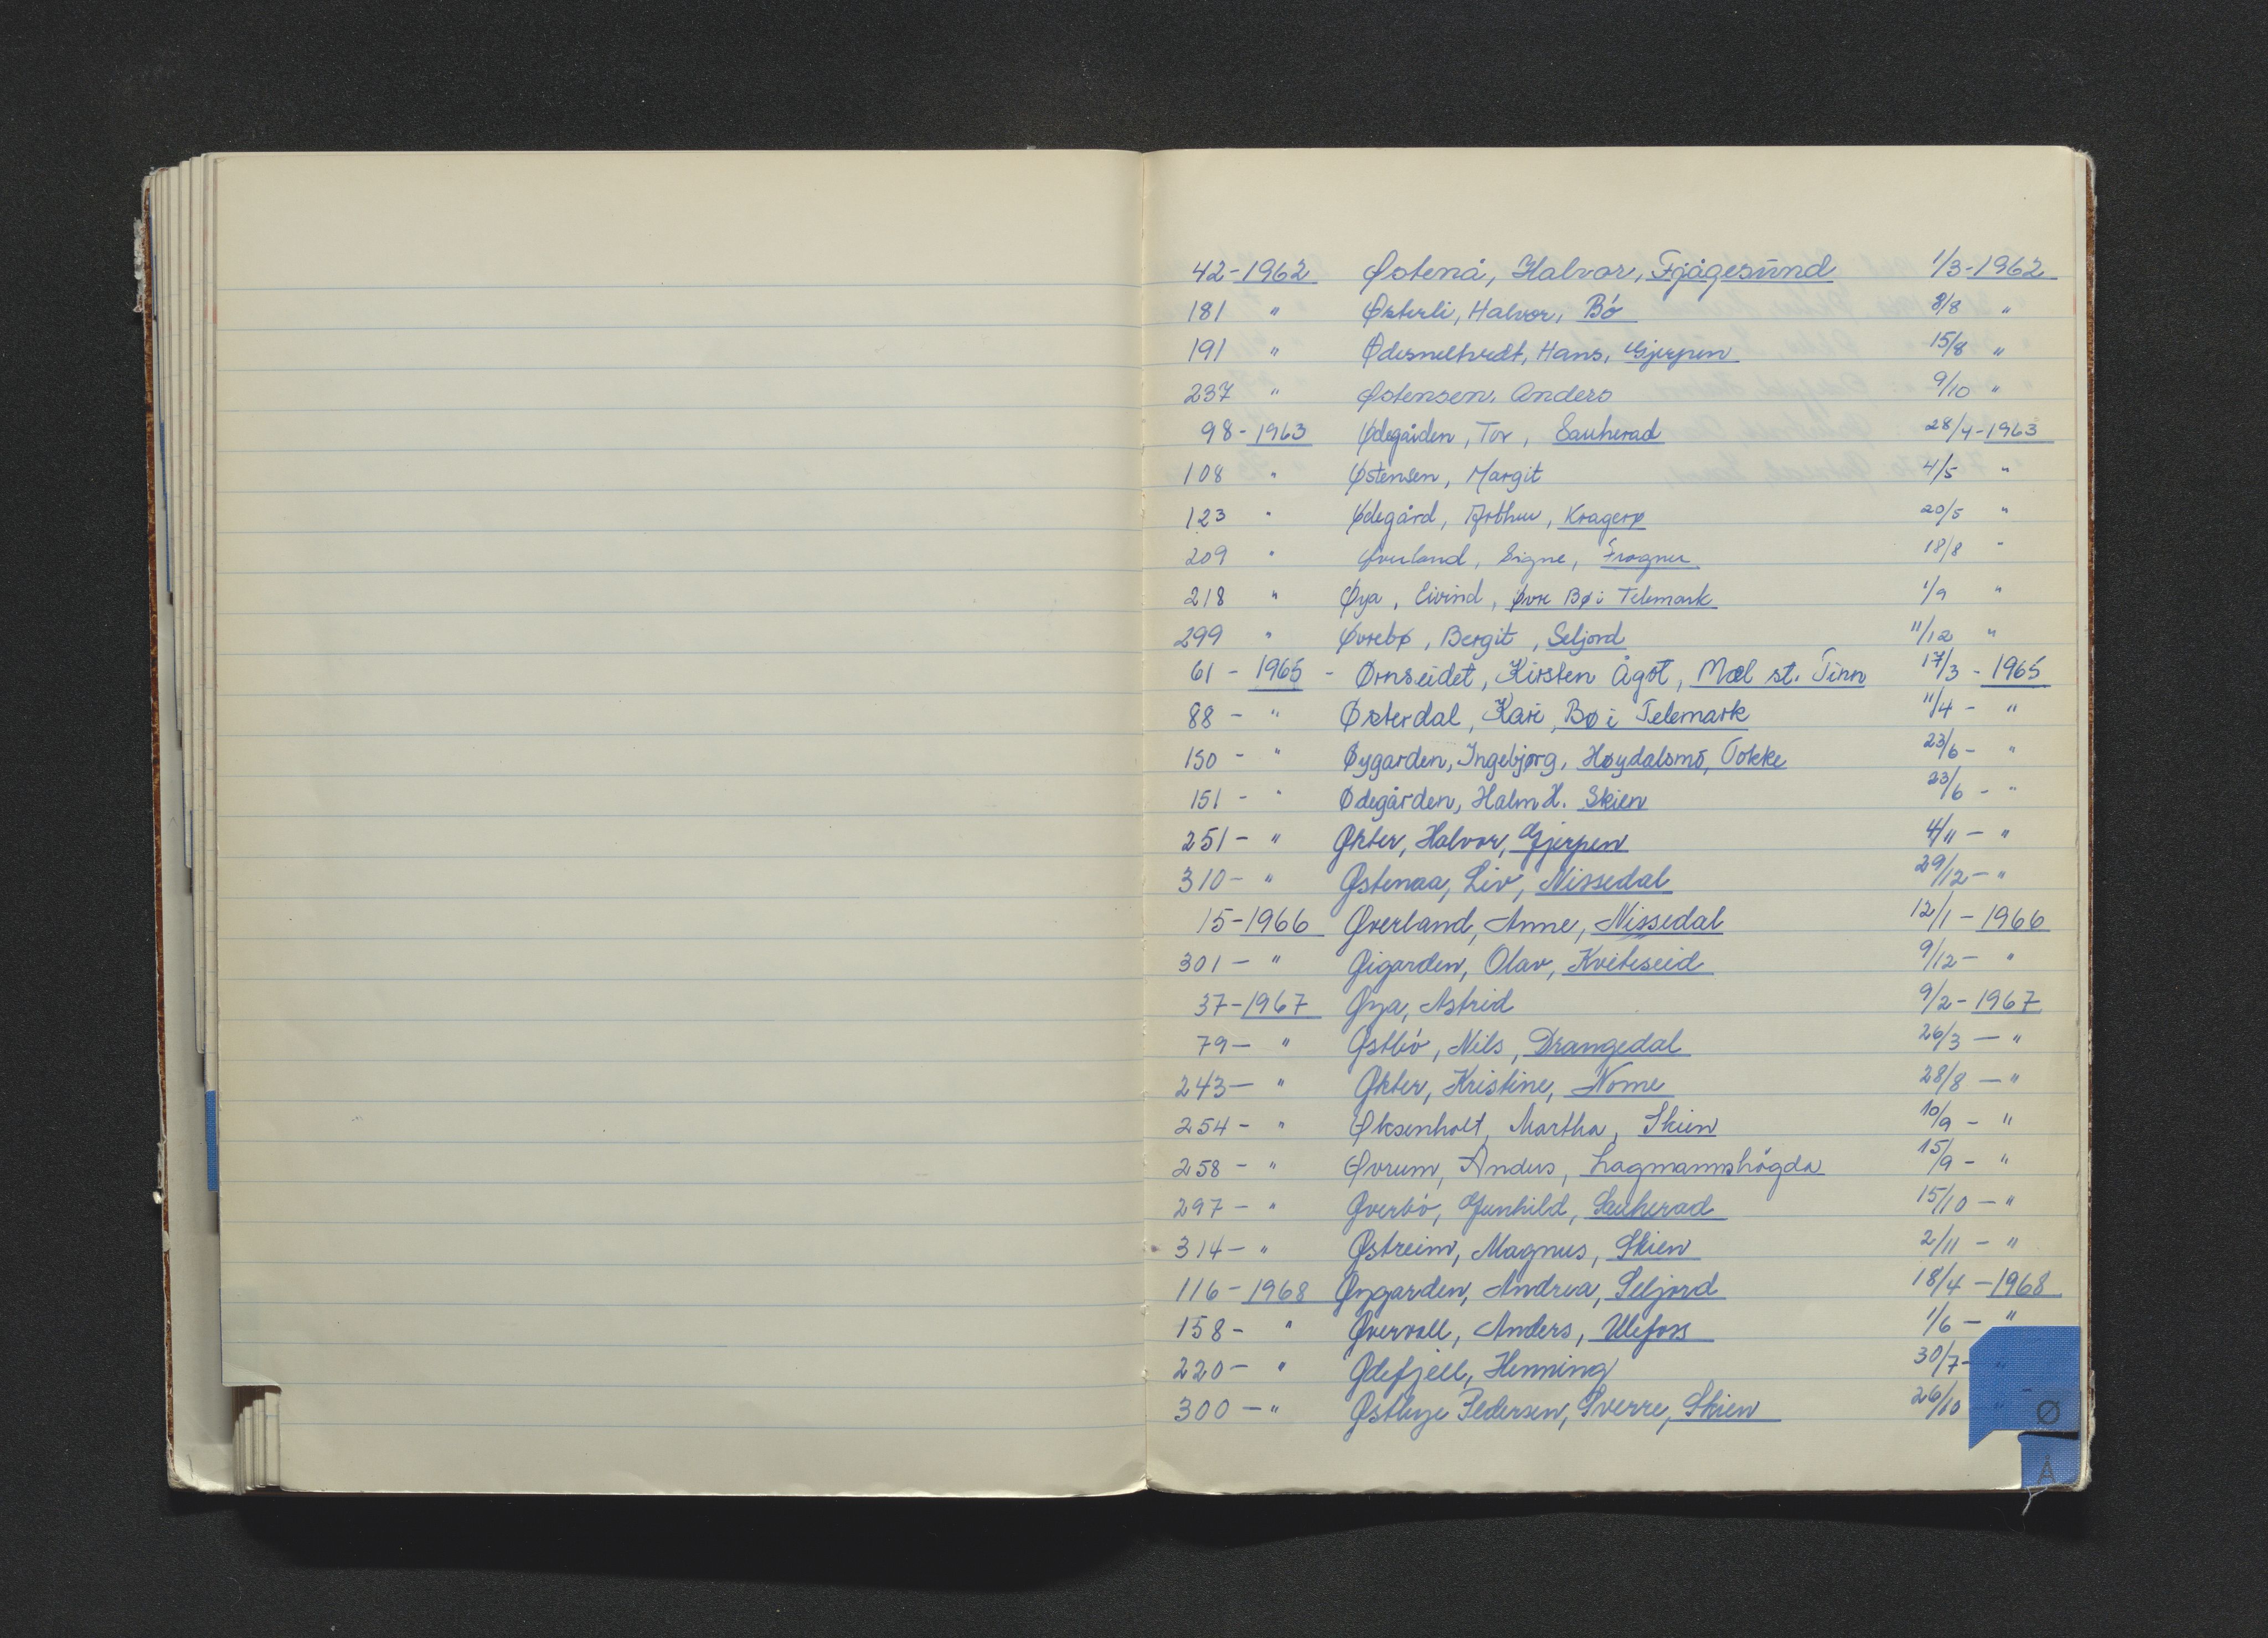 42-1962 Østenå, Halvor, Fjågesund 1/3-1962
181 " Østerli, Halvor, Bö 8/8 "
191 " Ødesneltvedt, Hans, Gjerpen 15/8 "
237 " Østensen, Anders 9/10 "
98-1963 Ødegården, Tor, Sauherad 28/4-1963
108 " Østensen, Margit 4/5 "
123 " Ødegård, Arthur, Kragerø 20/5 "
209 " Øverland, Signe, Frogner 18/8 "
218 " Øya, Eivind, Øvre Bø i Telemark 1/9 "
299 " Øvrebø, Bergit, Seljord 11/12 "
61 - 1965 - Ørnseidet, Kirsten Ågot, Mæl st. Tinn 17/3 - 1965
88 - " Østerdal, Kari, Bø i Telemark 11/4 - "
150 - " Øygarden, Ingebjørg, Høydalsmo, Tokke 23/6 - "
151 - " Ødegården, Halm H. Skien 23/6 - "
251 - " Økter, Halvor, Gjerpen 4/11 - "
310 - " Østenaa, Liv, Nissedal 29/12 - "
15-1966 Øverland, Anne, Nissedal 12/1 - 1966
301 - " Øigarden, Olav, Kviteseid 9/12 - "
37-1967 Øya, Astrid 9/2-1967
79 - " Østbö, Nils, Drangedal 26/3 - "
243 - " Økter, Kristine, Nome 28/8 - "
254 - " Øksenholt, Martha, Skien 10/9 - "
258 - " Øvrum, Anders, Lagmannshögda 15/9 - "
297 - " Øverbö, Gunhild, Sauherad 15/10 - "
314 - " Østreim, Magnus, Skien 2/11 - "
116-1968 Øygarden, Andrea, Seljord 18/4 - 1968
158 - " Øvervall, Anders, Ulefoss 1/6 - "
220 - " Ødefjell, Henning 30/7 - "
300 - " Østbye Pedersen, Sverre, Skien 26/10
Ø
Å